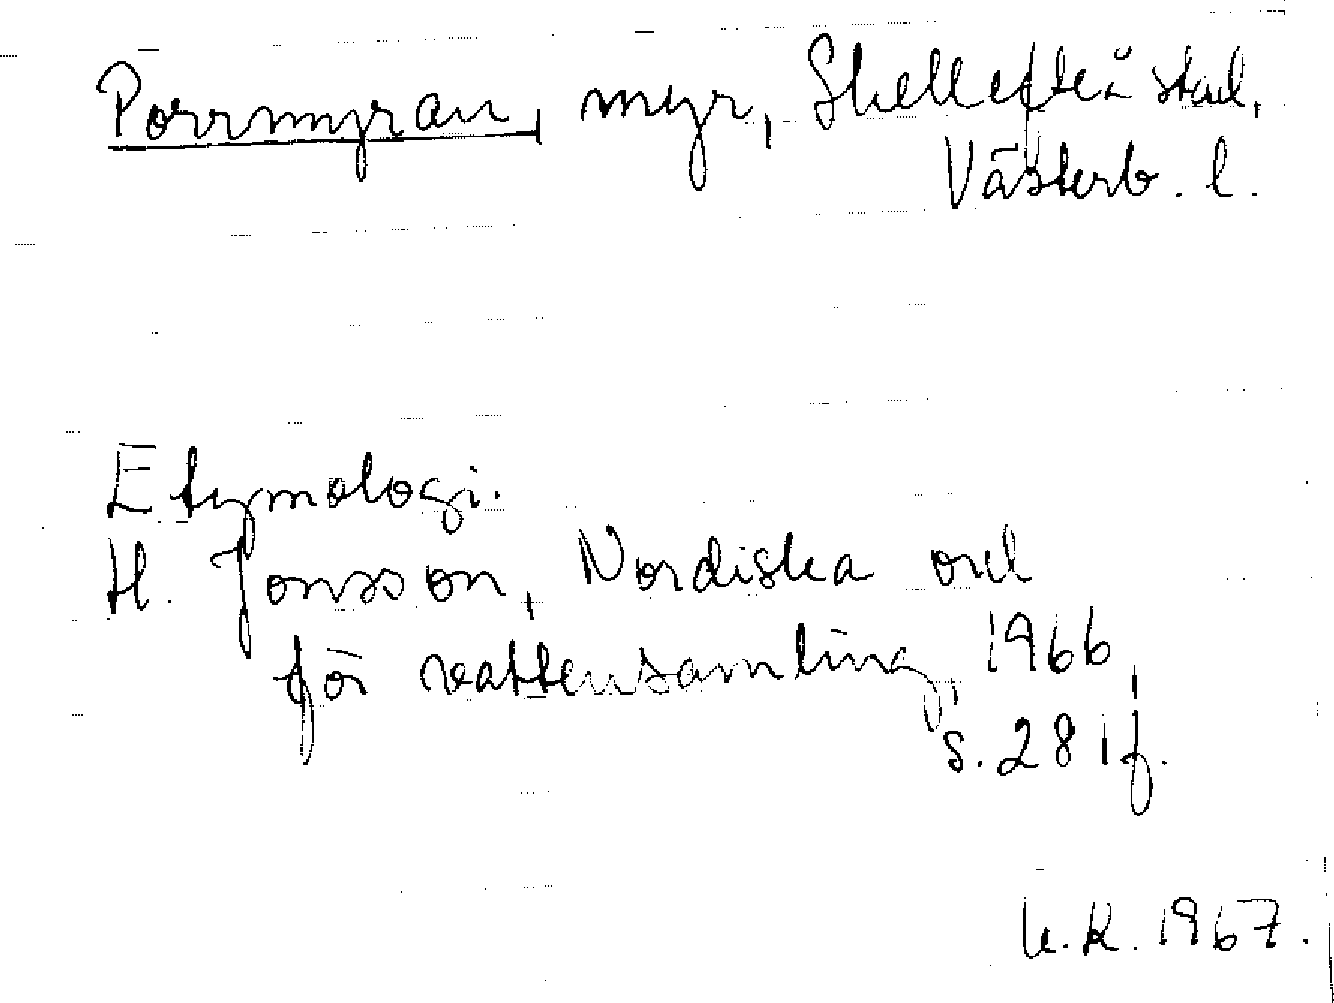 Porrmyran, myr, Skellefteå stad,
Västerb. l.
Etymologi.
H. Jonsson, Nordiska ord
för vattensamling, 1966,
s. 281 f.
K. 1967.